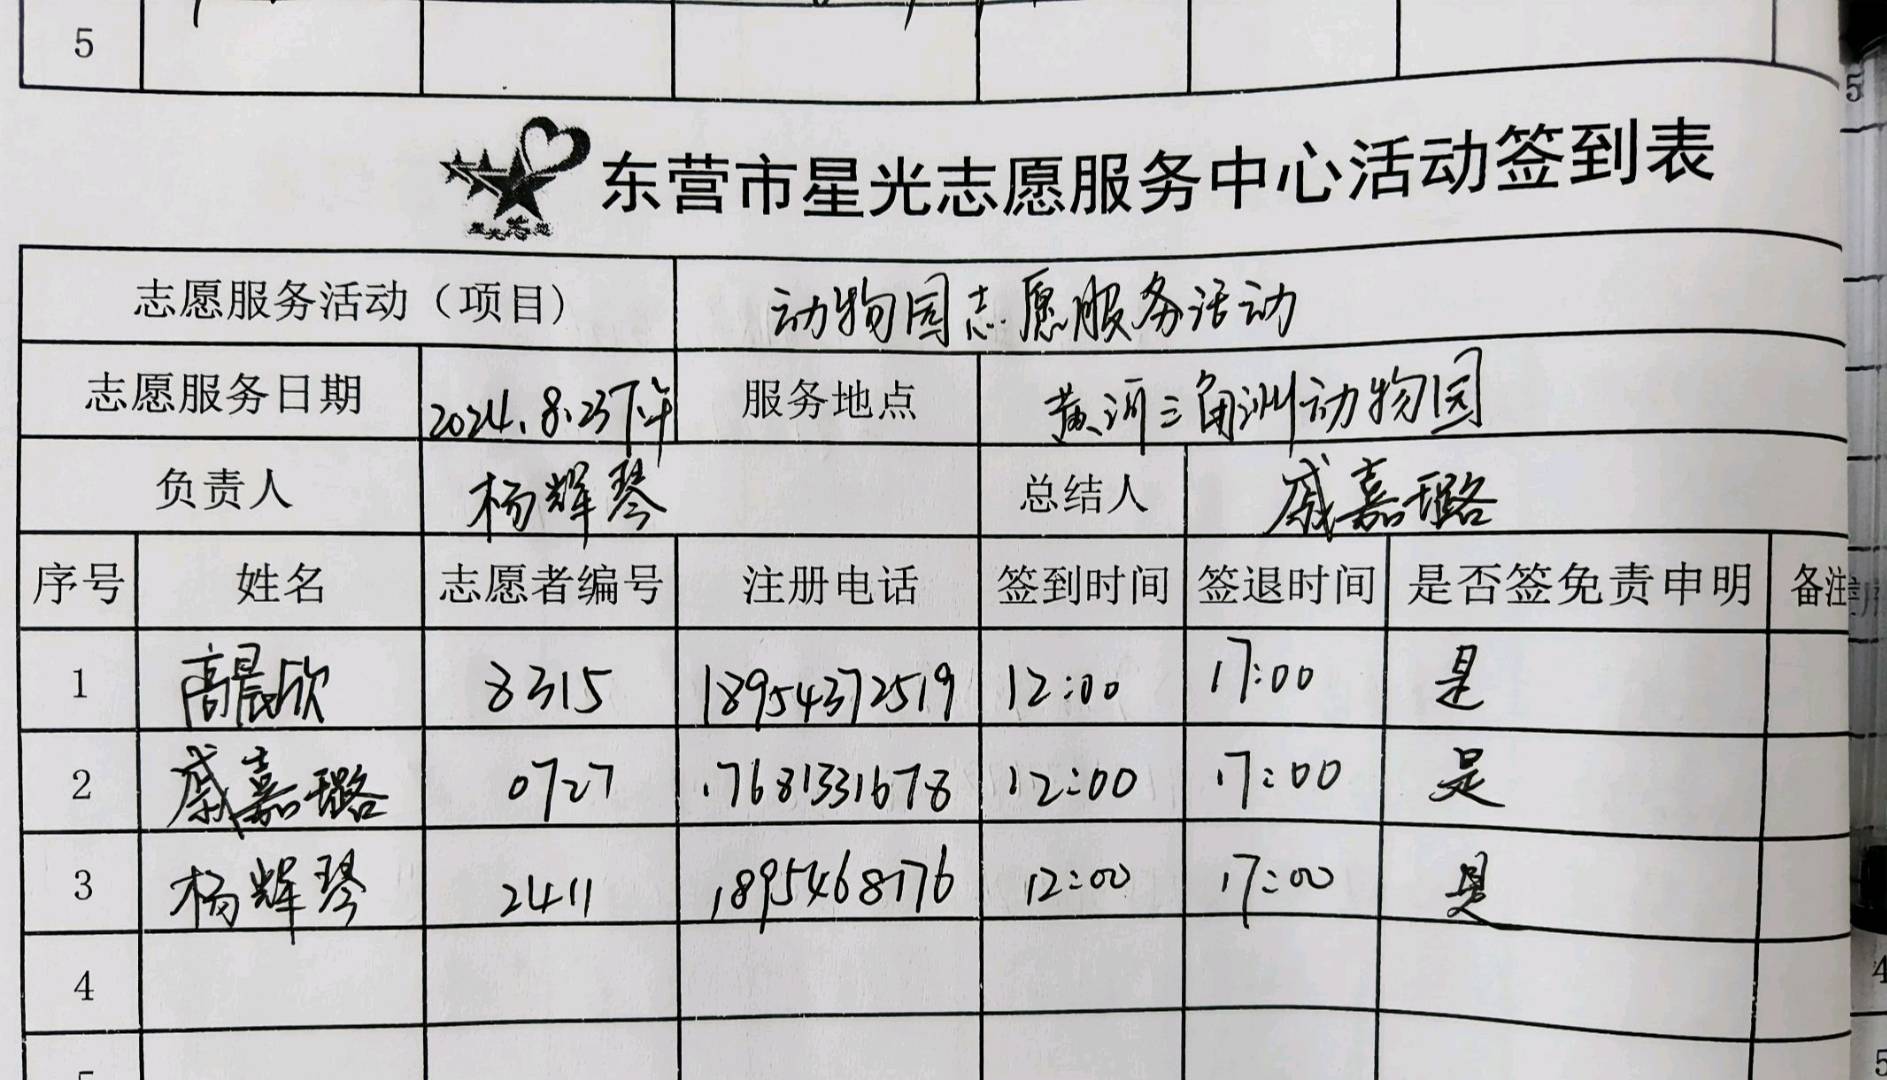 5
东营市星光志愿服务中心活动签到表
星光志愿
志愿服务活动（项目） 动物园志愿服务活动
志愿服务日期 2024.8.23下午 服务地点 黄河三角洲动物园
负责人 杨辉琴 总结人 戚嘉璐
序号 姓名 志愿者编号 注册电话 签到时间 签退时间 是否签免责申明 备注
1 高晨欣 8315 18954372519 12:00 17:00 是
2 戚嘉璐 0727 17681331678 12:00 17:00 是
3 杨辉琴 2411 1895468776 12:00 17:00 是
4
5
5
4
5